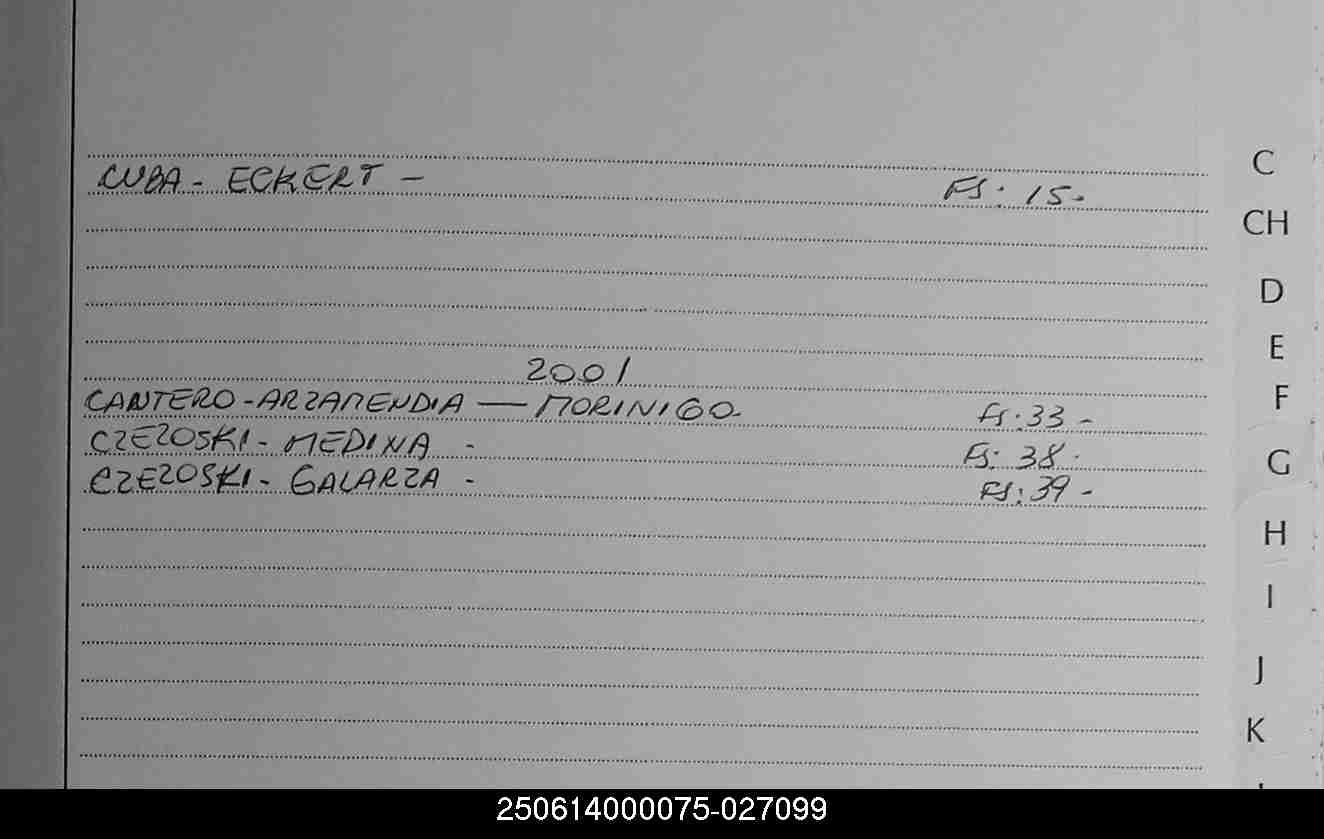 CUBA - ECKERT - FS: 15-
2001
CANTERO - ARZAMENDIA — MORINIGO- FS: 33 -
CZEZOSKI - MEDINA - FS: 38 -
CZEZOSKI - GALARZA - FS: 39 -
C
CH
D
E
F
G
H
I
J
K
250614000075-027099